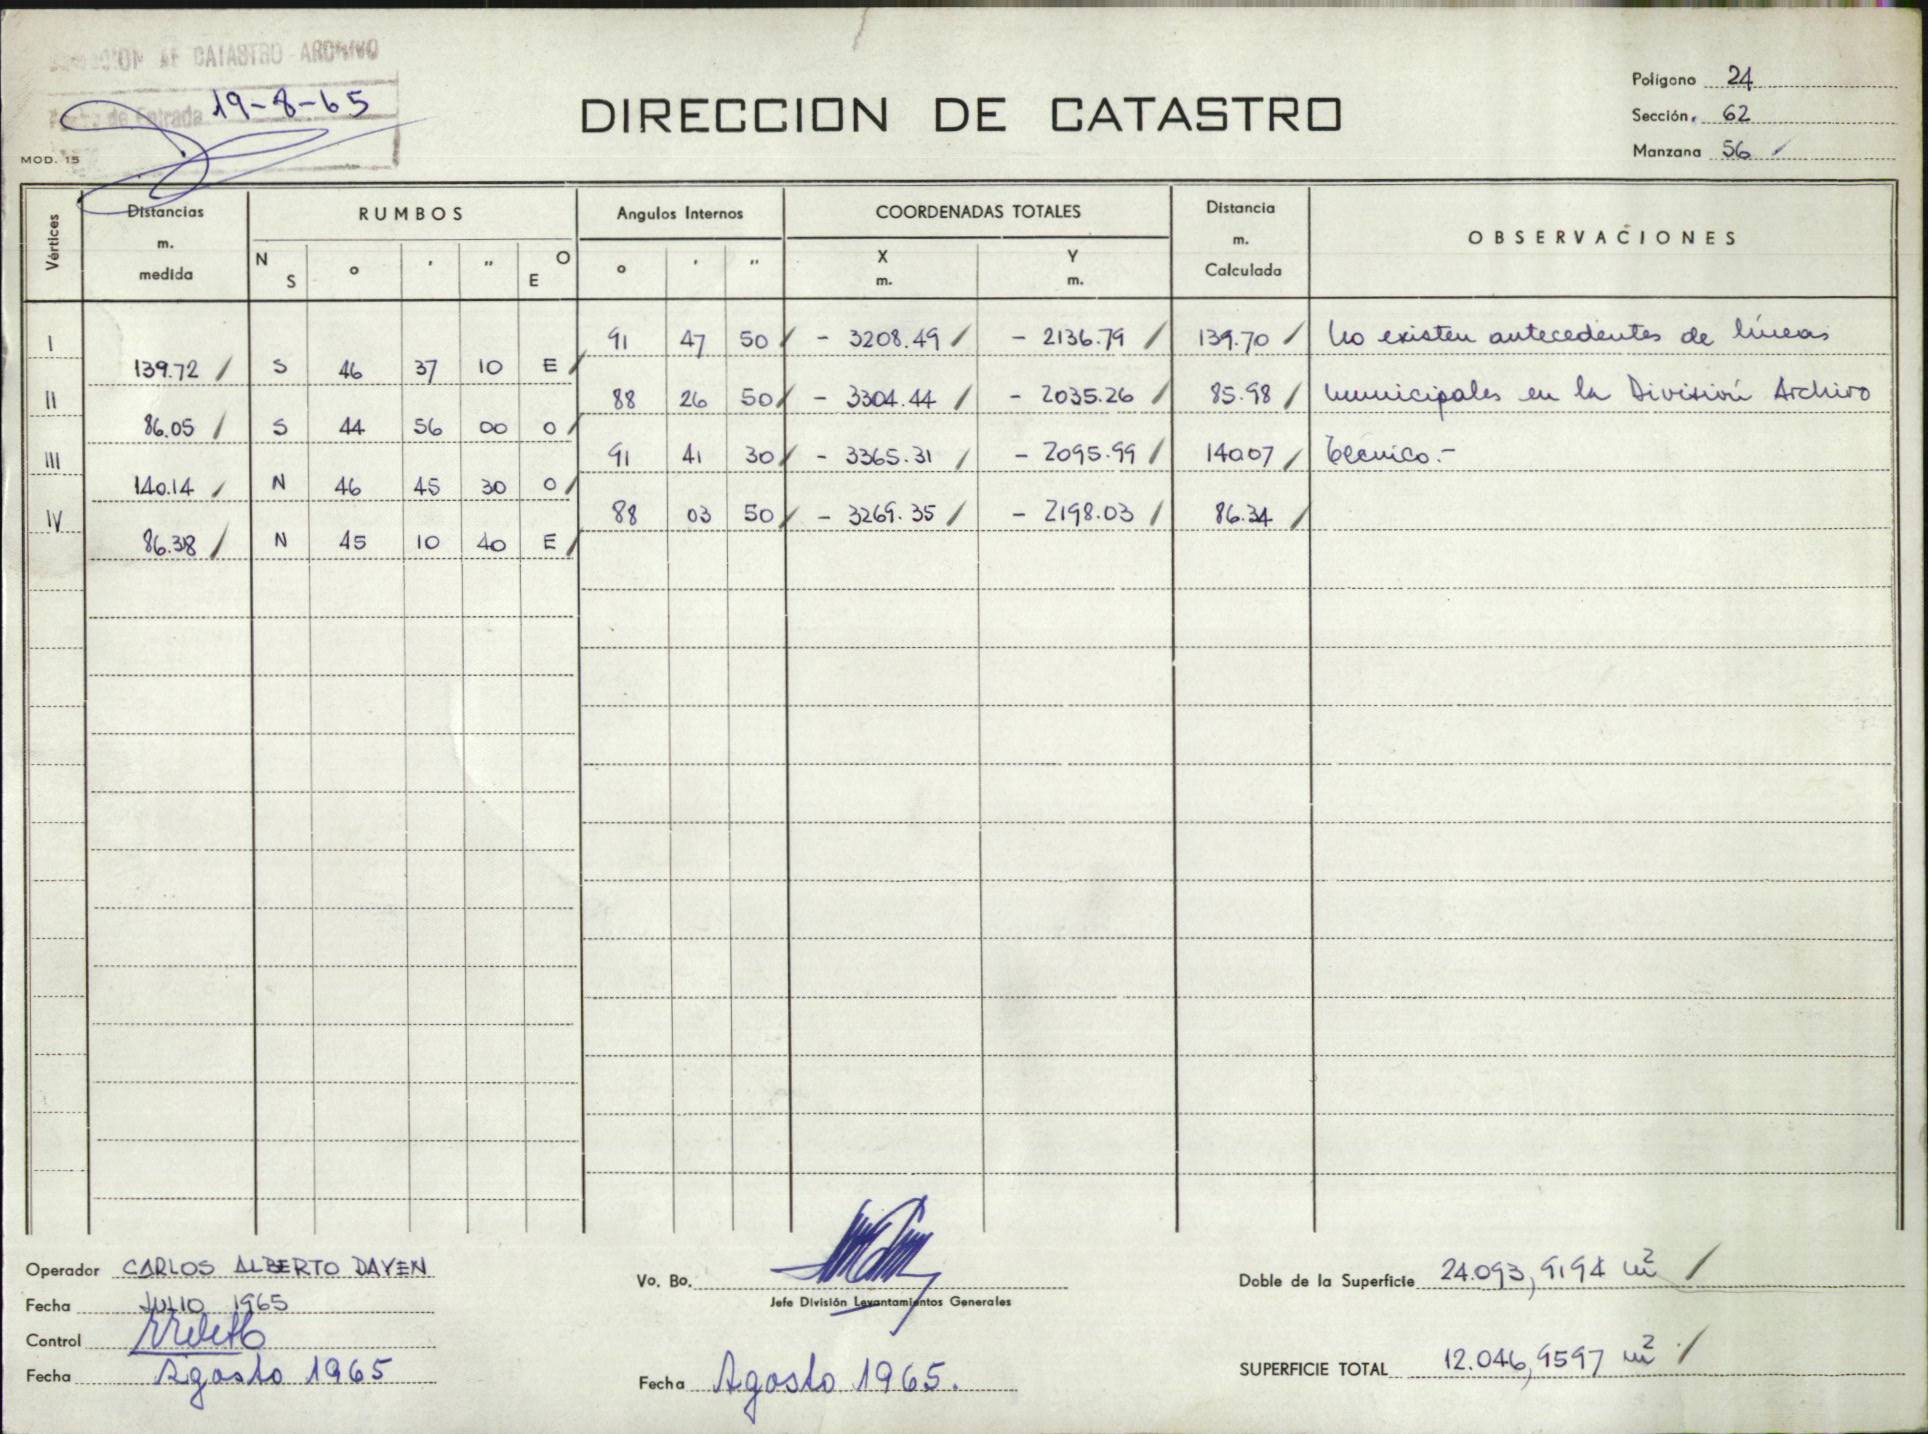 DIRECCION DE CATASTRO - ARCHIVO
de Entrada 19-8-65
MOD. 15
DIRECCION DE CATASTRO
Polígono 24
Sección. 62
Manzana 56
Vértices
Distancias m. medida
RUMBOS
N S ° ' " E O
Angulos Internos
° ' "
COORDENADAS TOTALES
X m. Y m.
Distancia m. Calculada
OBSERVACIONES
I 91 47 50 - 3208.49 - 2136.79 139.70 No existen antecedentes de líneas
139.72 S 46 37 10 E
II 88 26 50 - 3304.44 - 2035.26 85.98 municipales en la División Archivo
86.05 S 44 56 00 O
III 91 41 30 - 3365.31 - 2095.99 140.07 técnico.-
140.14 N 46 45 30 O
IV 88 03 50 - 3269.35 - 2198.03 86.34
86.38 N 45 10 40 E
Operador CARLOS ALBERTO DAYEN
Fecha JULIO 1965
Control
Fecha Agosto 1965
Vo. Bo.
Jefe División Levantamientos Generales
Fecha Agosto 1965.
Doble de la Superficie 24.093,9194 m²
SUPERFICIE TOTAL 12.046,9597 m²